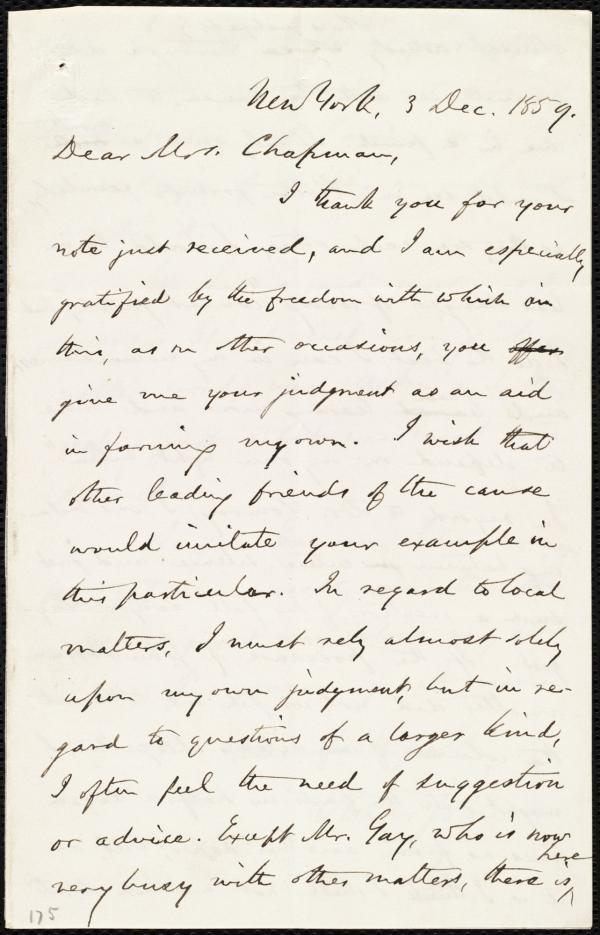 New York, 3 Dec. 1859.
Dear Mrs. Chapman,
I thank you for your
note just received, and I am especially
gratified by the freedom with which on
this, as on other occasions, you offer
give me your judgment as an aid
in forming my own. I wish that
other leading friends of the cause
would imitate your example in
this particular. In regard to local
matters, I must rely almost solely
upon my own judgment, but in re-
gard to questions of a larger kind,
I often feel the need of suggestion
or advice. Except Mr. Gay, who is now
very busy with other matters, there is here
175